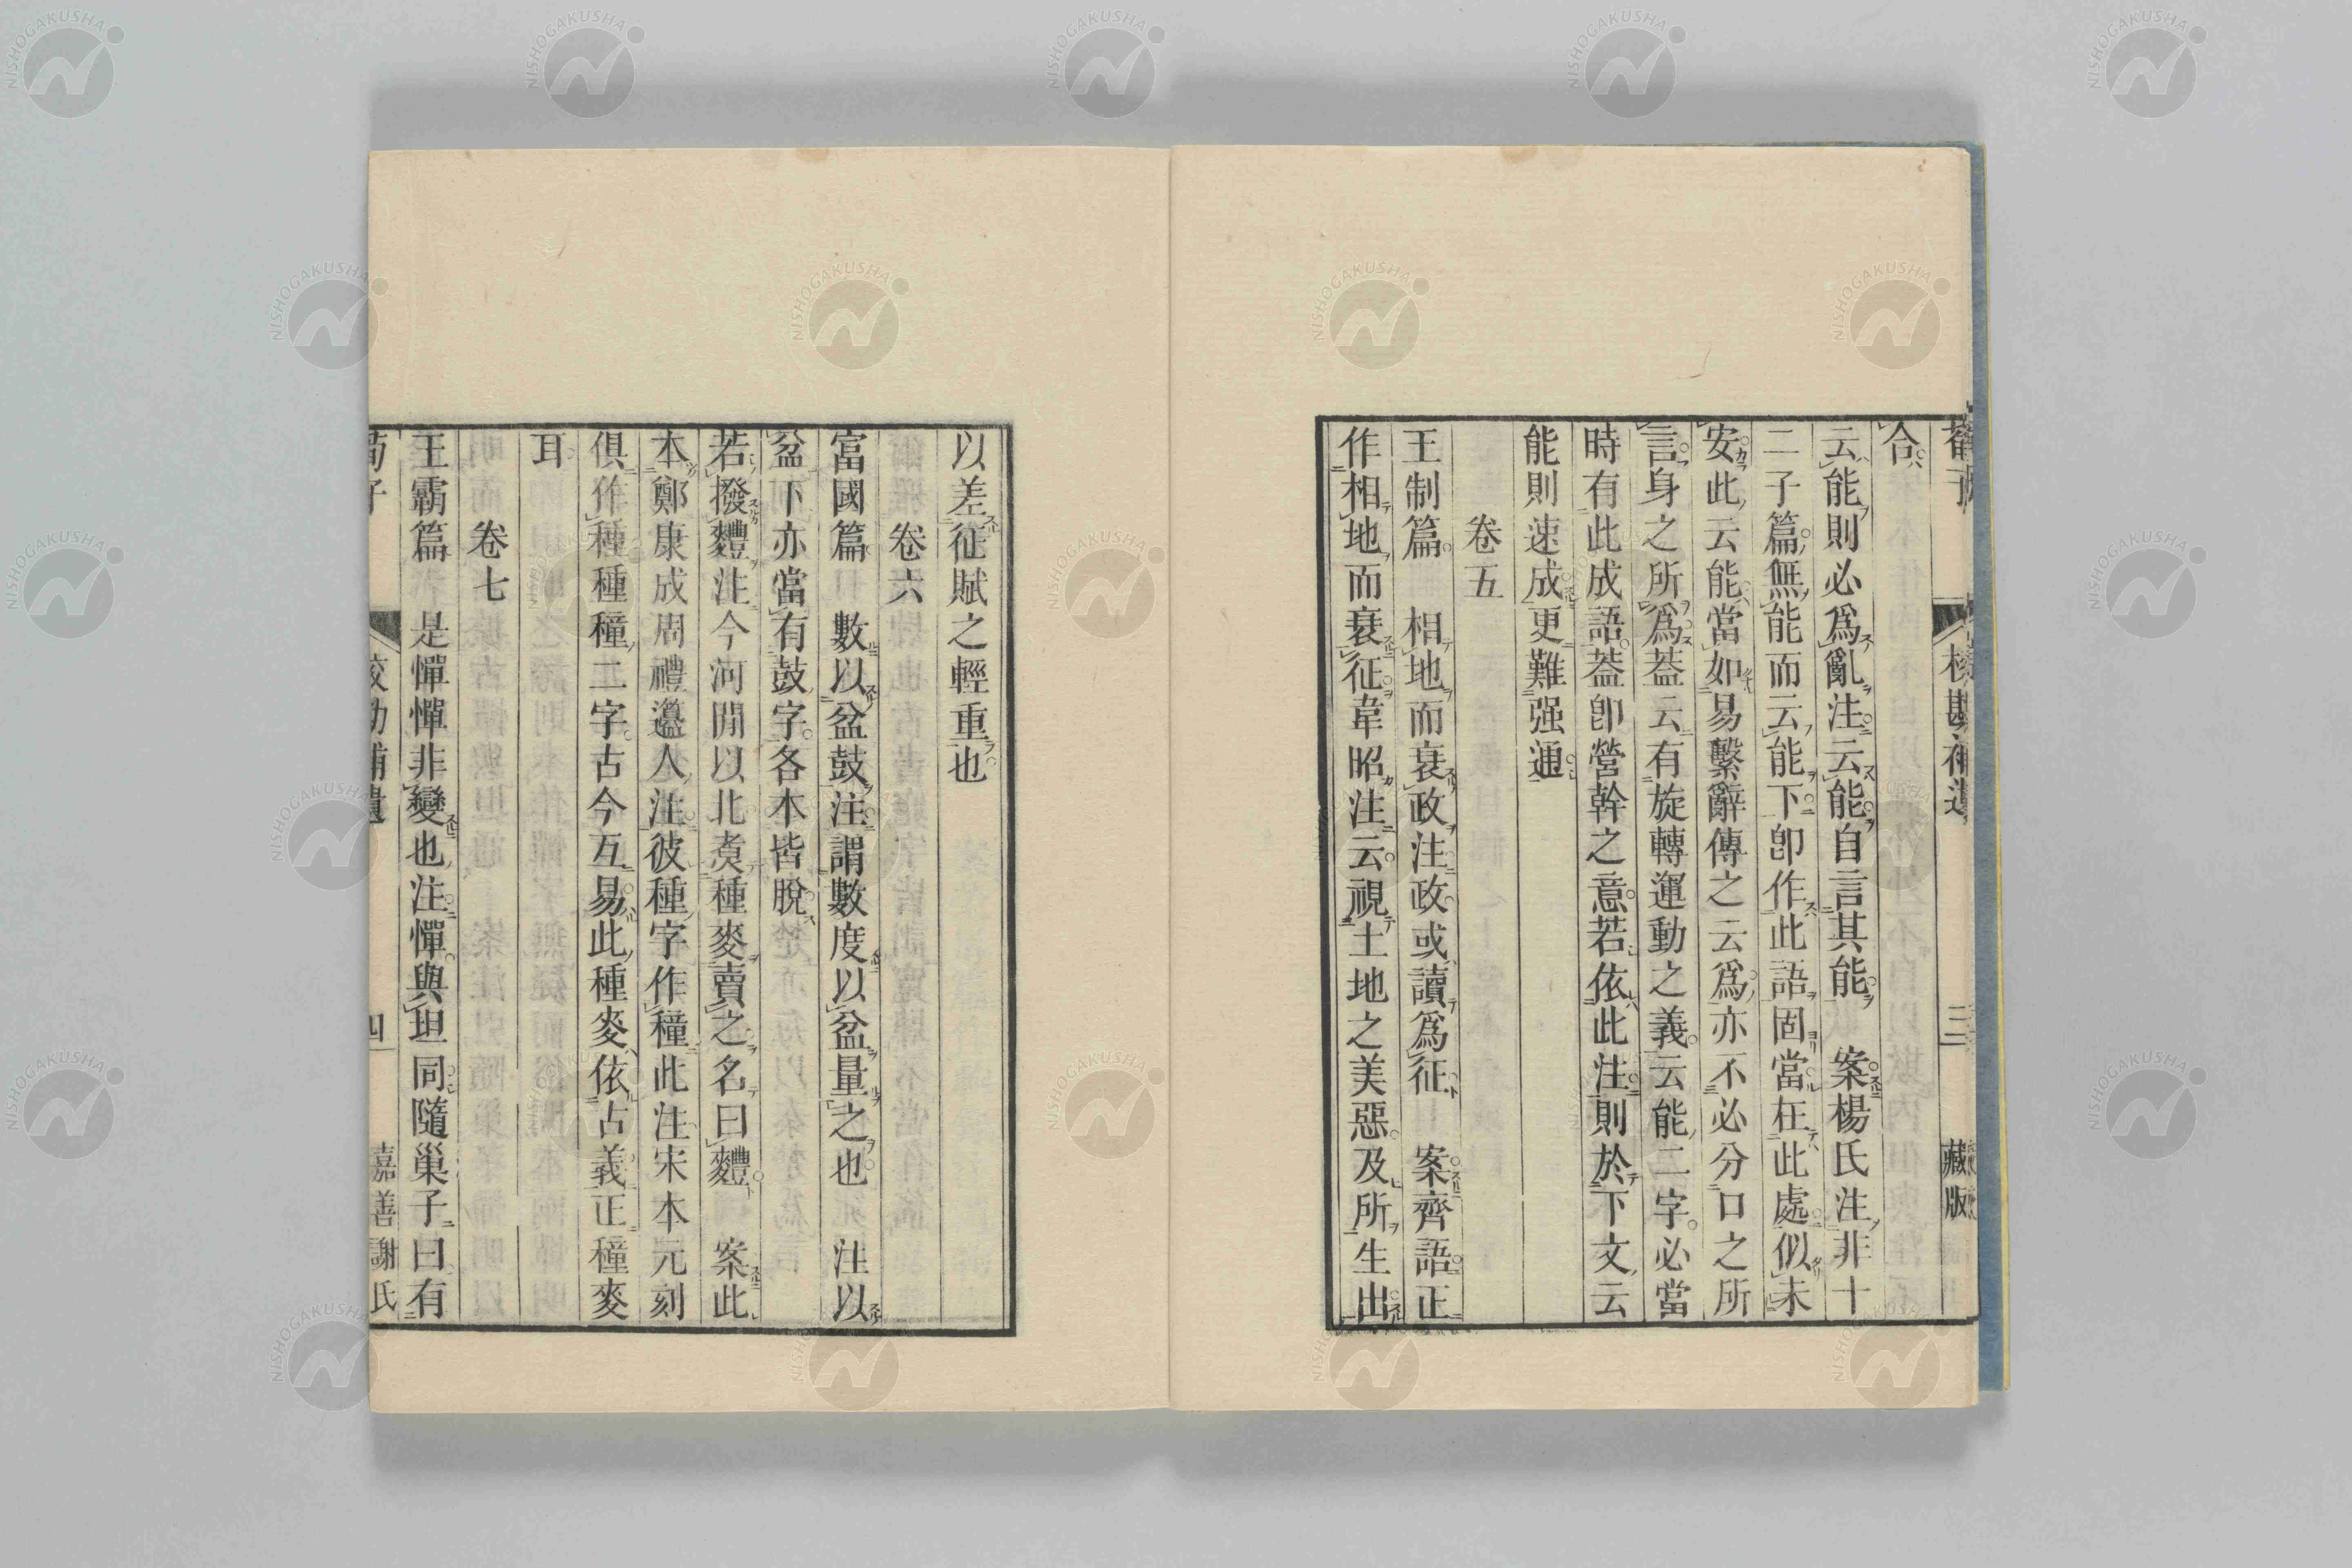 荀子 校勘補遺 三 藏版
合
云能則必爲亂注云能自言其能 案楊氏注非十
二子篇無能而云能下卽作此語固當在此處似未
安此云能當如易繫辭傳之云爲亦不必分口之所
言身之所爲葢云有旋轉運動之義云能二字必當
時有此成語葢卽營幹之意若依此注則於下文云
能則速成更難强通
卷五
王制篇 相地而衰政注政或讀爲征 案齊語正
作相地而衰征韋昭注云視土地之美惡及所生出
以差征賦之輕重也
卷六
富國篇 數以盆鼓注謂數度以盆量之也 注以
盆下亦當有鼓字各本皆脫
若撥麷注今河閒以北煑種麥賣之名曰麷 案此
本鄭康成周禮籩人注彼種字作穜此注宋本元刻
俱作種種穜二字古今互易此種麥依古義正穜麥
耳
卷七
王霸篇 是憚憚非變也注憚與坦同隨巢子曰有
荀子 校勘補遺 四 嘉善謝氏